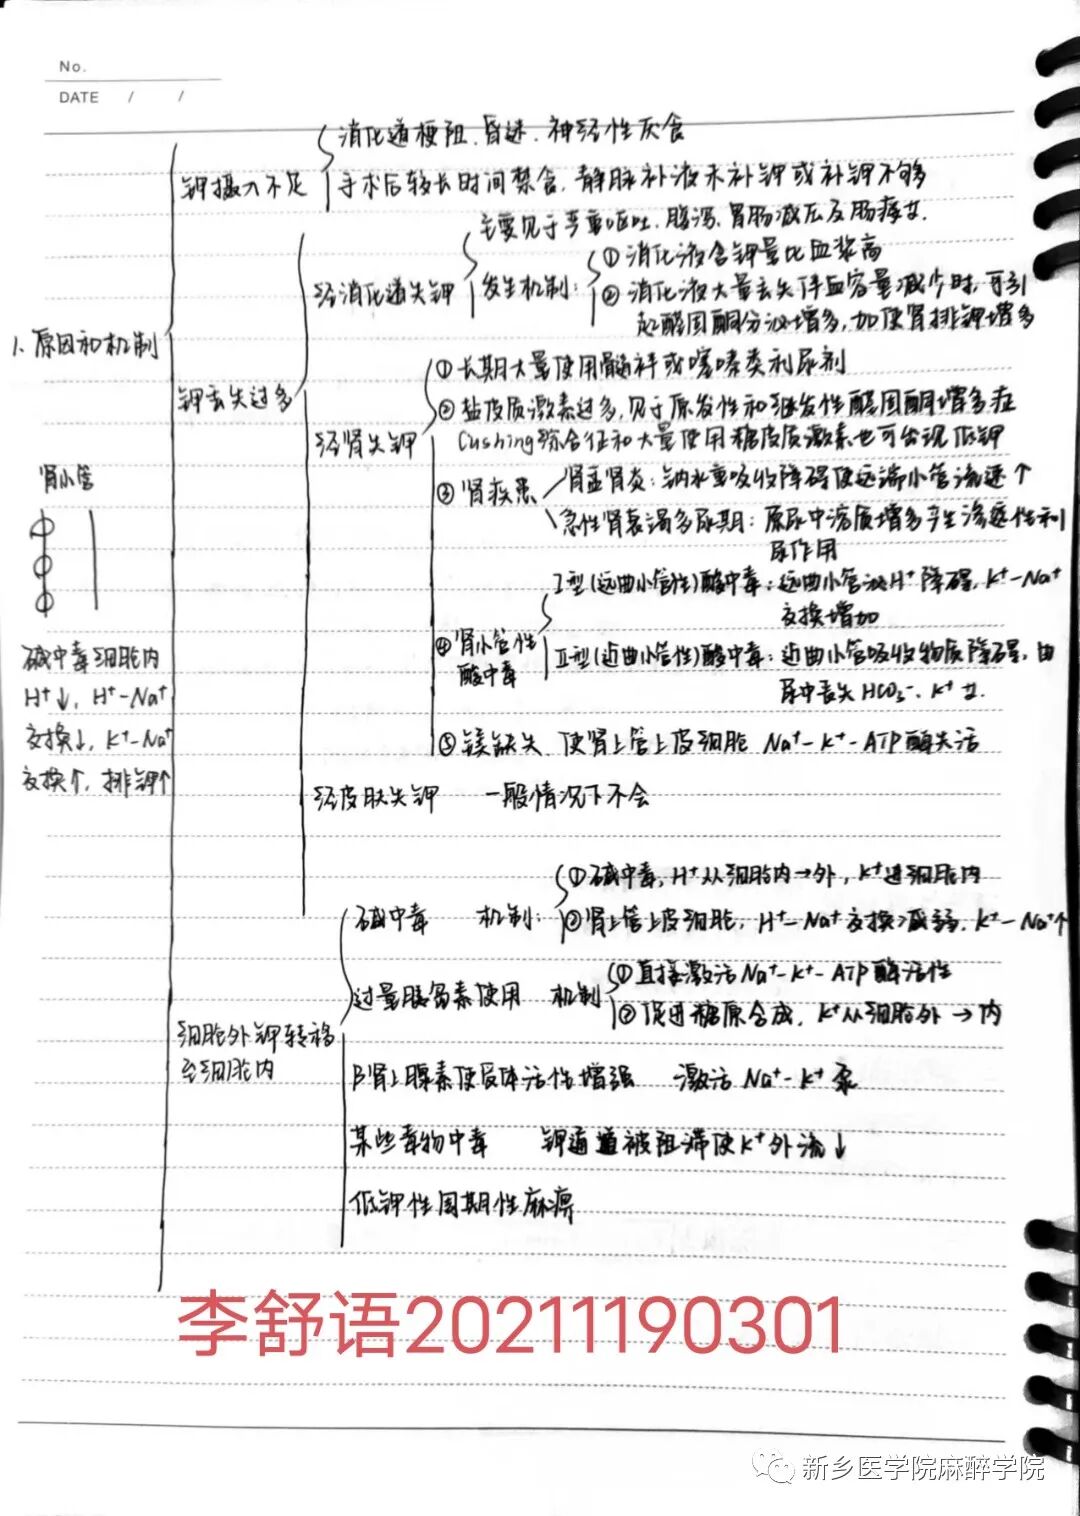 No.
DATE / /
消化道梗阻、昏迷、神经性厌食
钾摄入不足
手术后较长时间禁食，静脉补液未补钾或补钾不够
主要见于严重呕吐、腹泻、胃肠减压及肠瘘廿.
经消化道失钾
发生机制：
①消化液含钾量比血浆高
②消化液大量丢失伴血容量减少时，可引
起醛固酮分泌增多，加使肾排钾增多
1、原因和机制
钾丢失过多
①长期大量使用髓袢或噻嗪类利尿剂
②盐皮质激素过多，见于原发性和继发性醛固酮增多症
Cushing综合征和大量使用糖皮质激素也可出现低钾
经肾失钾
③肾疾患
肾盂肾炎：钠水重吸收障碍使远端小管流速↑
急性肾衰竭多尿期：原尿中溶质增多产生渗透性利
尿作用
肾小管
Ⅰ型(远曲小管性)酸中毒：远曲小管泌H⁺障碍，K⁺-Na⁺
交换增加
④肾小管性
酸中毒
Ⅱ型(近曲小管性)酸中毒：近曲小管吸收物质障碍，由
尿中丢失HCO₃⁻、K⁺廿.
碱中毒细胞内
H⁺↓，H⁺-Na⁺
交换↓，K⁺-Na⁺
交换↑，排钾↑
⑤镁缺失 使肾上管上皮细胞 Na⁺-K⁺-ATP酶失活
经皮肤失钾 一般情况下不会
碱中毒 机制：
①碱中毒，H⁺从细胞内→外，K⁺进细胞内
②肾上管上皮细胞，H⁺-Na⁺交换减弱，K⁺-Na⁺↑
过量胰岛素使用 机制
①直接激活Na⁺-K⁺-ATP酶活性
②促进糖原合成，K⁺从细胞外→内
细胞外钾转移
至细胞内
β肾上腺素使受体活性增强 激活Na⁺-K⁺泵
某些毒物中毒 钾通道被阻滞使K⁺外流↓
低钾性周期性麻痹
李舒语20211190301
新乡医学院麻醉学院